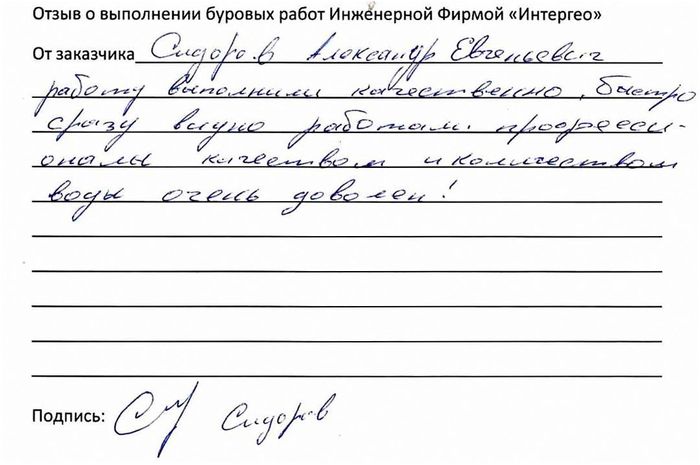 Отзыв о выполнении буровых работ Инженерной Фирмой «Интергео»
От заказчика Сидоров Александр Евгеньевич
работу выполнили качественно, быстро
сразу видно работали професси-
оналы качеством и количеством
воды очень доволен!
Подпись: Сидоров